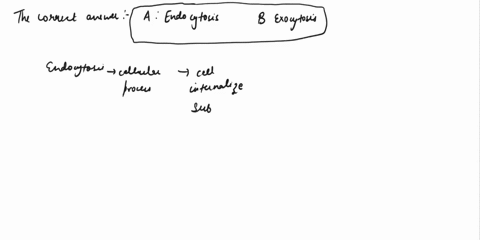 The correct answer:- A: Endocytosis B Exocytosis
Endocytosis → cellular process → cell internalize sub